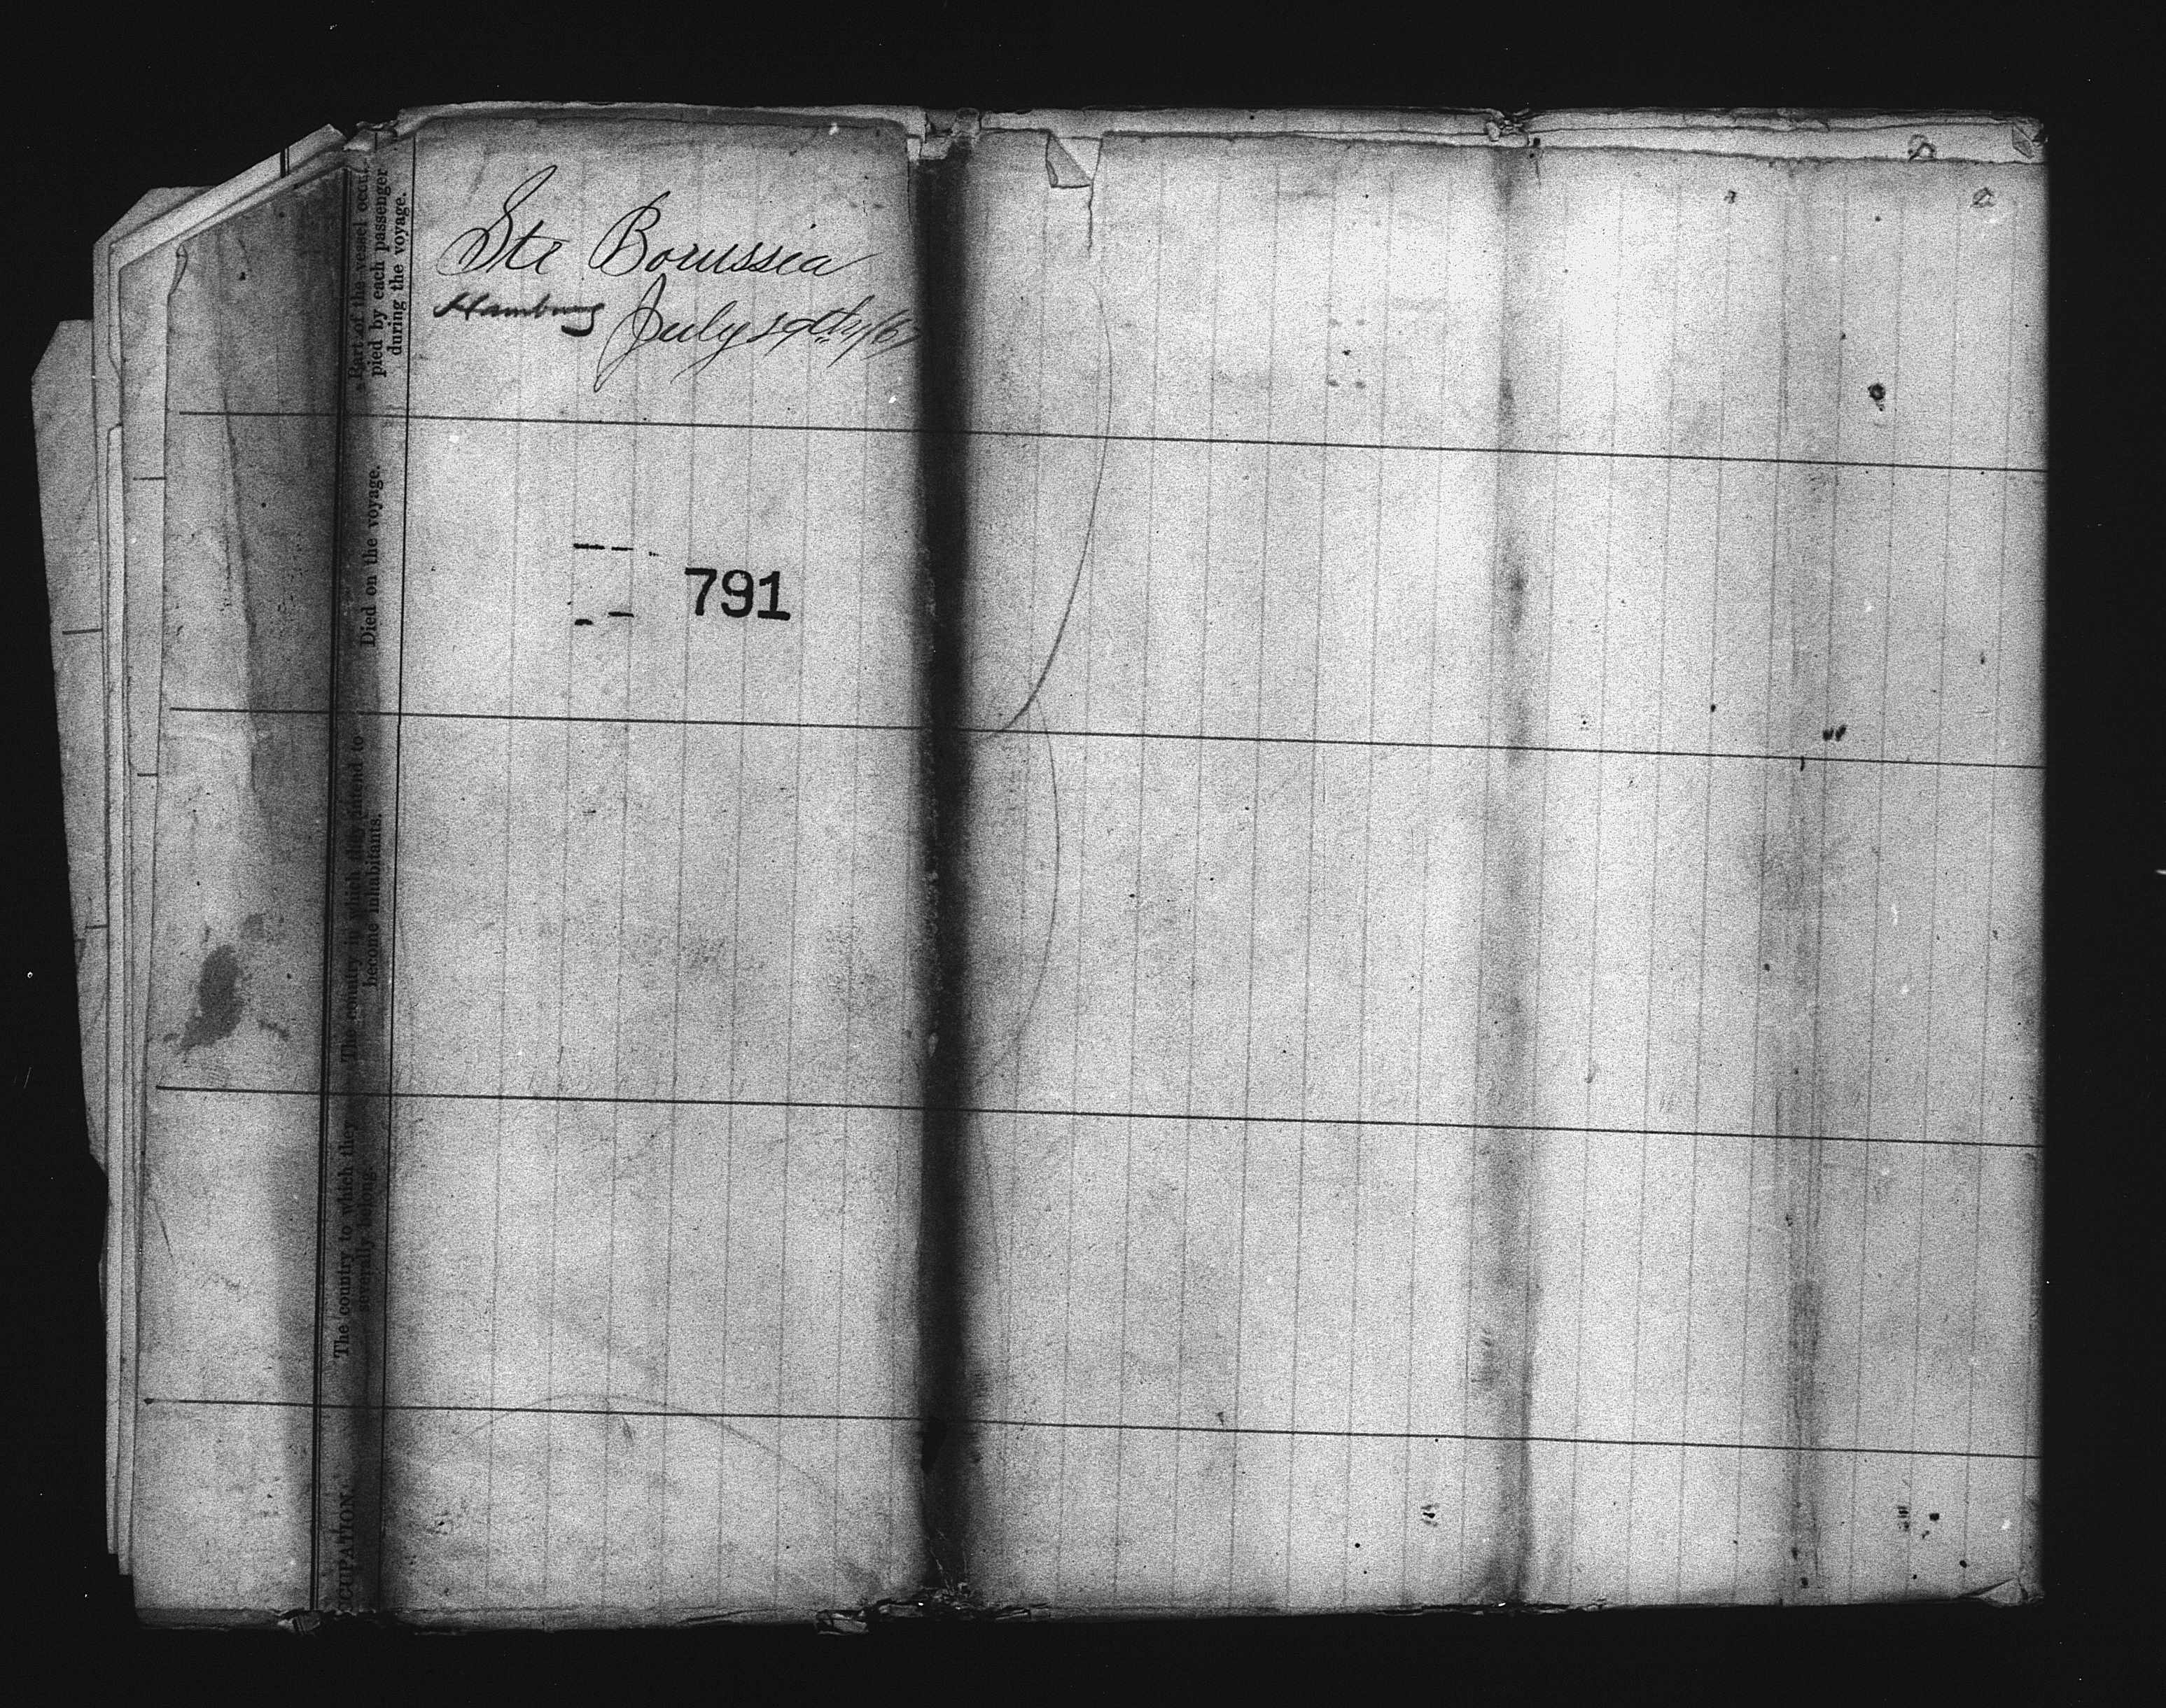 Str Borussia
Hamburg July 29th/67
791
Part of the vessel occu-
pied by each passenger
during the voyage.
Died on the voyage.
The country in which they intend to
become inhabitants.
The country to which they
severally belong.
CUPATION.